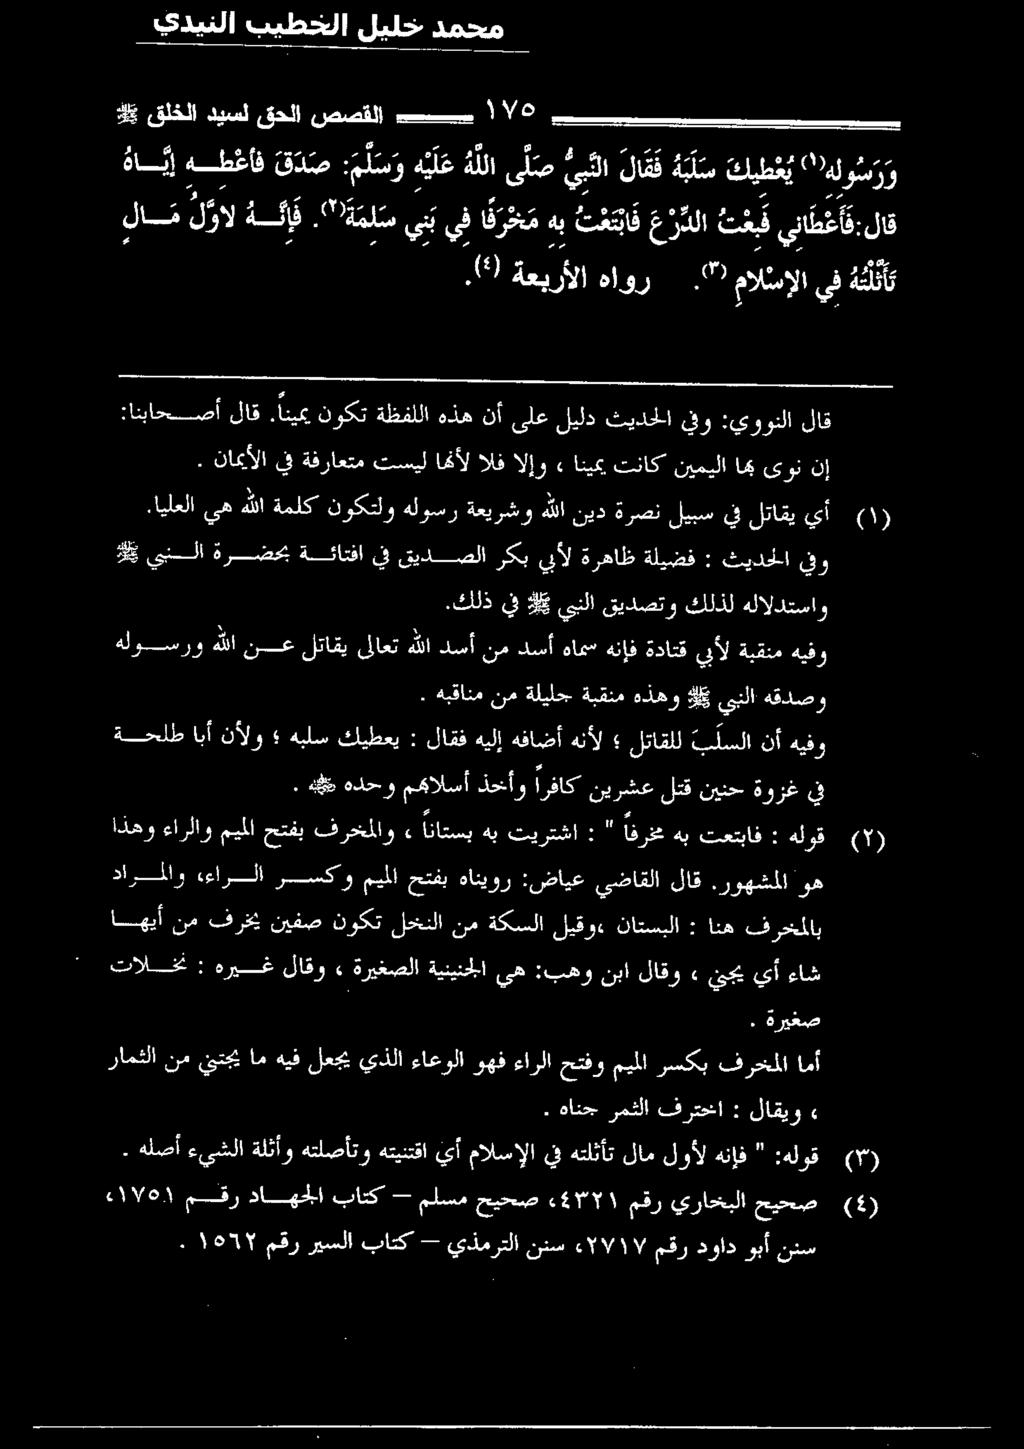 محمد خليل الخطيب النيدي
القصص الحق لسيد الخلق ﷺ ١٧٥
وَرَسُولِهِ(١) يُعْطِيكَ سَلَبَهُ فَقَالَ النَّبِيُّ صَلَّى اللَّهُ عَلَيْهِ وَسَلَّمَ: صَدَقَ فَأَعْطِـهِ إِيَّـاهُ
قال:فَأَعْطَانِي فَبِعْتُ الدِّرْعَ فَابْتَعْتُ بِهِ مَخْرَفًا فِي بَنِي سَلِمَةَ(٢). فَإِنَّـهُ لأَوَّلُ مَـالٍ
تَأَثَّلْتُهُ فِي الإِسْلامِ (٣). رواه الأربعة (٤).
قال النووي: وفي الحديث دليل على أن هذه اللفظة تكون يميناً. قال أصـحابنا:
إن نوى بها اليمين كانت يمينا ، وإلا فلا لأنها ليست متعارفة في الأيمان .
(١) أي يقاتل في سبيل نصرة دين الله وشريعة رسوله ولتكون كلمة الله هي العليا.
وفي الحديث : فضيلة ظاهرة لأبي بكر الصـديق في افتائـة بحضـرة النـبي ﷺ
واستدلاله لذلك وتصديق النبي ﷺ في ذلك.
وفيه منقبة لأبي قتادة فإنه سماه أسد من أسد الله تعالى يقاتل عـن الله ورسـوله
وصدقه النبي ﷺ وهذه منقبة جليلة من مناقبه .
وفيه أن السلَبَ للقاتل ؛ لأنه أضافه إليه فقال : يعطيك سلبه ؛ ولأن أبا طلحـة
في غزوة حنين قتل عشرين كافراً وأخذ أسلابهم وحده ﷺ .
(٢) قوله : فابتعت به مخرفاً " : اشتريت به بستاناً ، والمخرف بفتح الميم والراء وهذا
هو المشهور. قال القاضي عياض: ورويناه بفتح الميم وكسـر الـراء، والمـراد
بالمخرف هنا : البستان ،وقيل السكة من النخل تكون صفين يخرف من أيهـا
شاء أي يجني ، وقال ابن وهب: هي الجنينية الصغيرة ، وقال غـيره : نخـلات
صغيرة .
أما المخرف بكسر الميم وفتح الراء فهو الوعاء الذي يجعل فيه ما يجتني من الثمار
، ويقال : اخترف الثمر جناه .
(٣) قوله: " فإنه لأول مال تأثلته في الإسلام أي اقتنيته وتأصلته وأثلة الشيء أصله .
(٤) صحيح البخاري رقم ٤٣٢١، صحيح مسلم – كتاب الجهـاد رقـم ١٧٥١،
سنن أبو داود رقم ٢٧١٧، سنن الترمذي – كتاب السير رقم ١٥٦٢ .